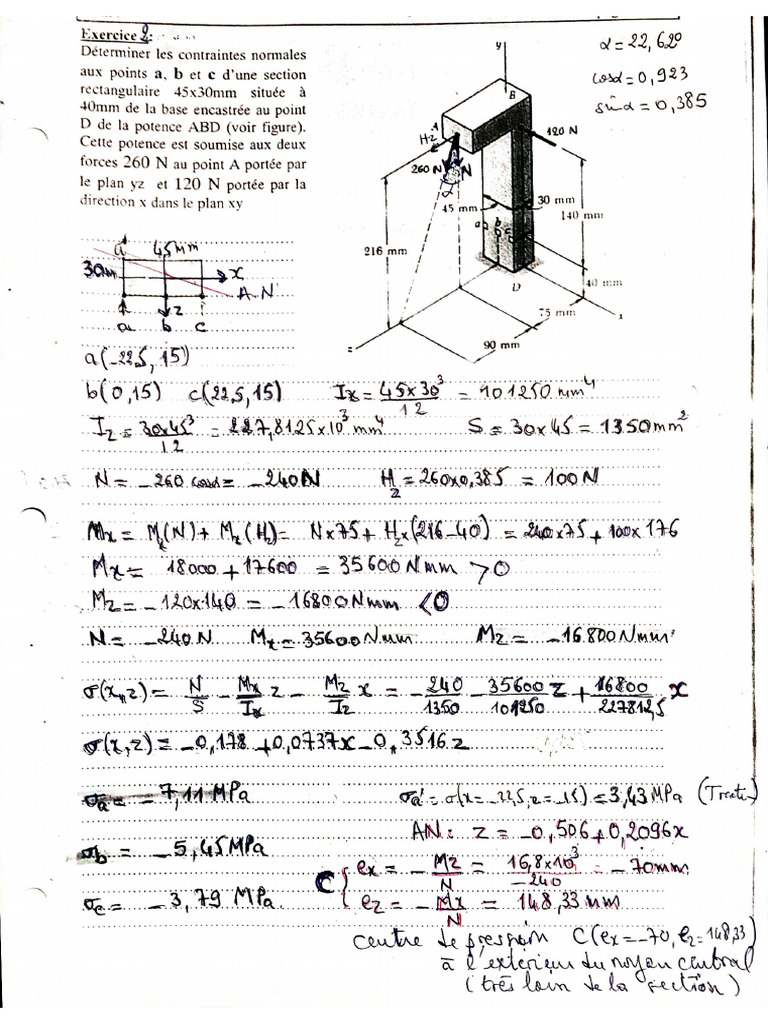 Exercice 2:
Déterminer les contraintes normales
aux points a, b et c d'une section
rectangulaire 45x30mm située à
40mm de la base encastrée au point
D de la potence ABD (voir figure).
Cette potence est soumise aux deux
forces 260 N au point A portée par
le plan yz et 120 N portée par la
direction x dans le plan xy
α = 22,62°
cosα = 0,923
sinα = 0,385
y
B
A
Hz
120 N
260 N
N
α
45 mm
30 mm
140 mm
a
b
c
216 mm
D
40 mm
75 mm
x
90 mm
z
a'
45mm
30mm
x
A.N
z
a b c
a(-22,5, 15)
b(0,15) c(22,5, 15) Ix = 45x30³/12 = 101250 mm⁴
Iz = 30x45³/12 = 227,8125x10³ mm⁴ S = 30x45 = 1350mm²
N = -260 cosα = -240N Hz = 260x0,385 = 100N
Mx = Mx(N) + Mx(Hz) = Nx75 + Hzx(216-40) = 240x75 + 100x176
Mx = 18000 + 17600 = 35600 Nmm > 0
Mz = -120x140 = -16800Nmm < 0
N = -240 N Mx = 35600 Nmm Mz = -16800 Nmm
σ(x,z) = N/S - Mx/Ix z - Mz/Iz x = -240/1350 - 35600/101250 z + 16800/227812,5 x
σ(x,z) = -0,178 + 0,0737x - 0,3516z
σa = -7,11 MPa σa' = σ(x=-22,5, z=-15) = 3,43 MPa (Traction)
AN: z = -0,506 + 0,2096x
σb = -5,45 MPa
C { ex = -Mz/N = 16,8x10³/-240 = -70mm
σc = -3,79 MPa. ez = -Mx/N = 148,33 mm
centre de pression C(ex=-70, ez=148,33)
à l'extérieur du noyau central
(très loin de la section)